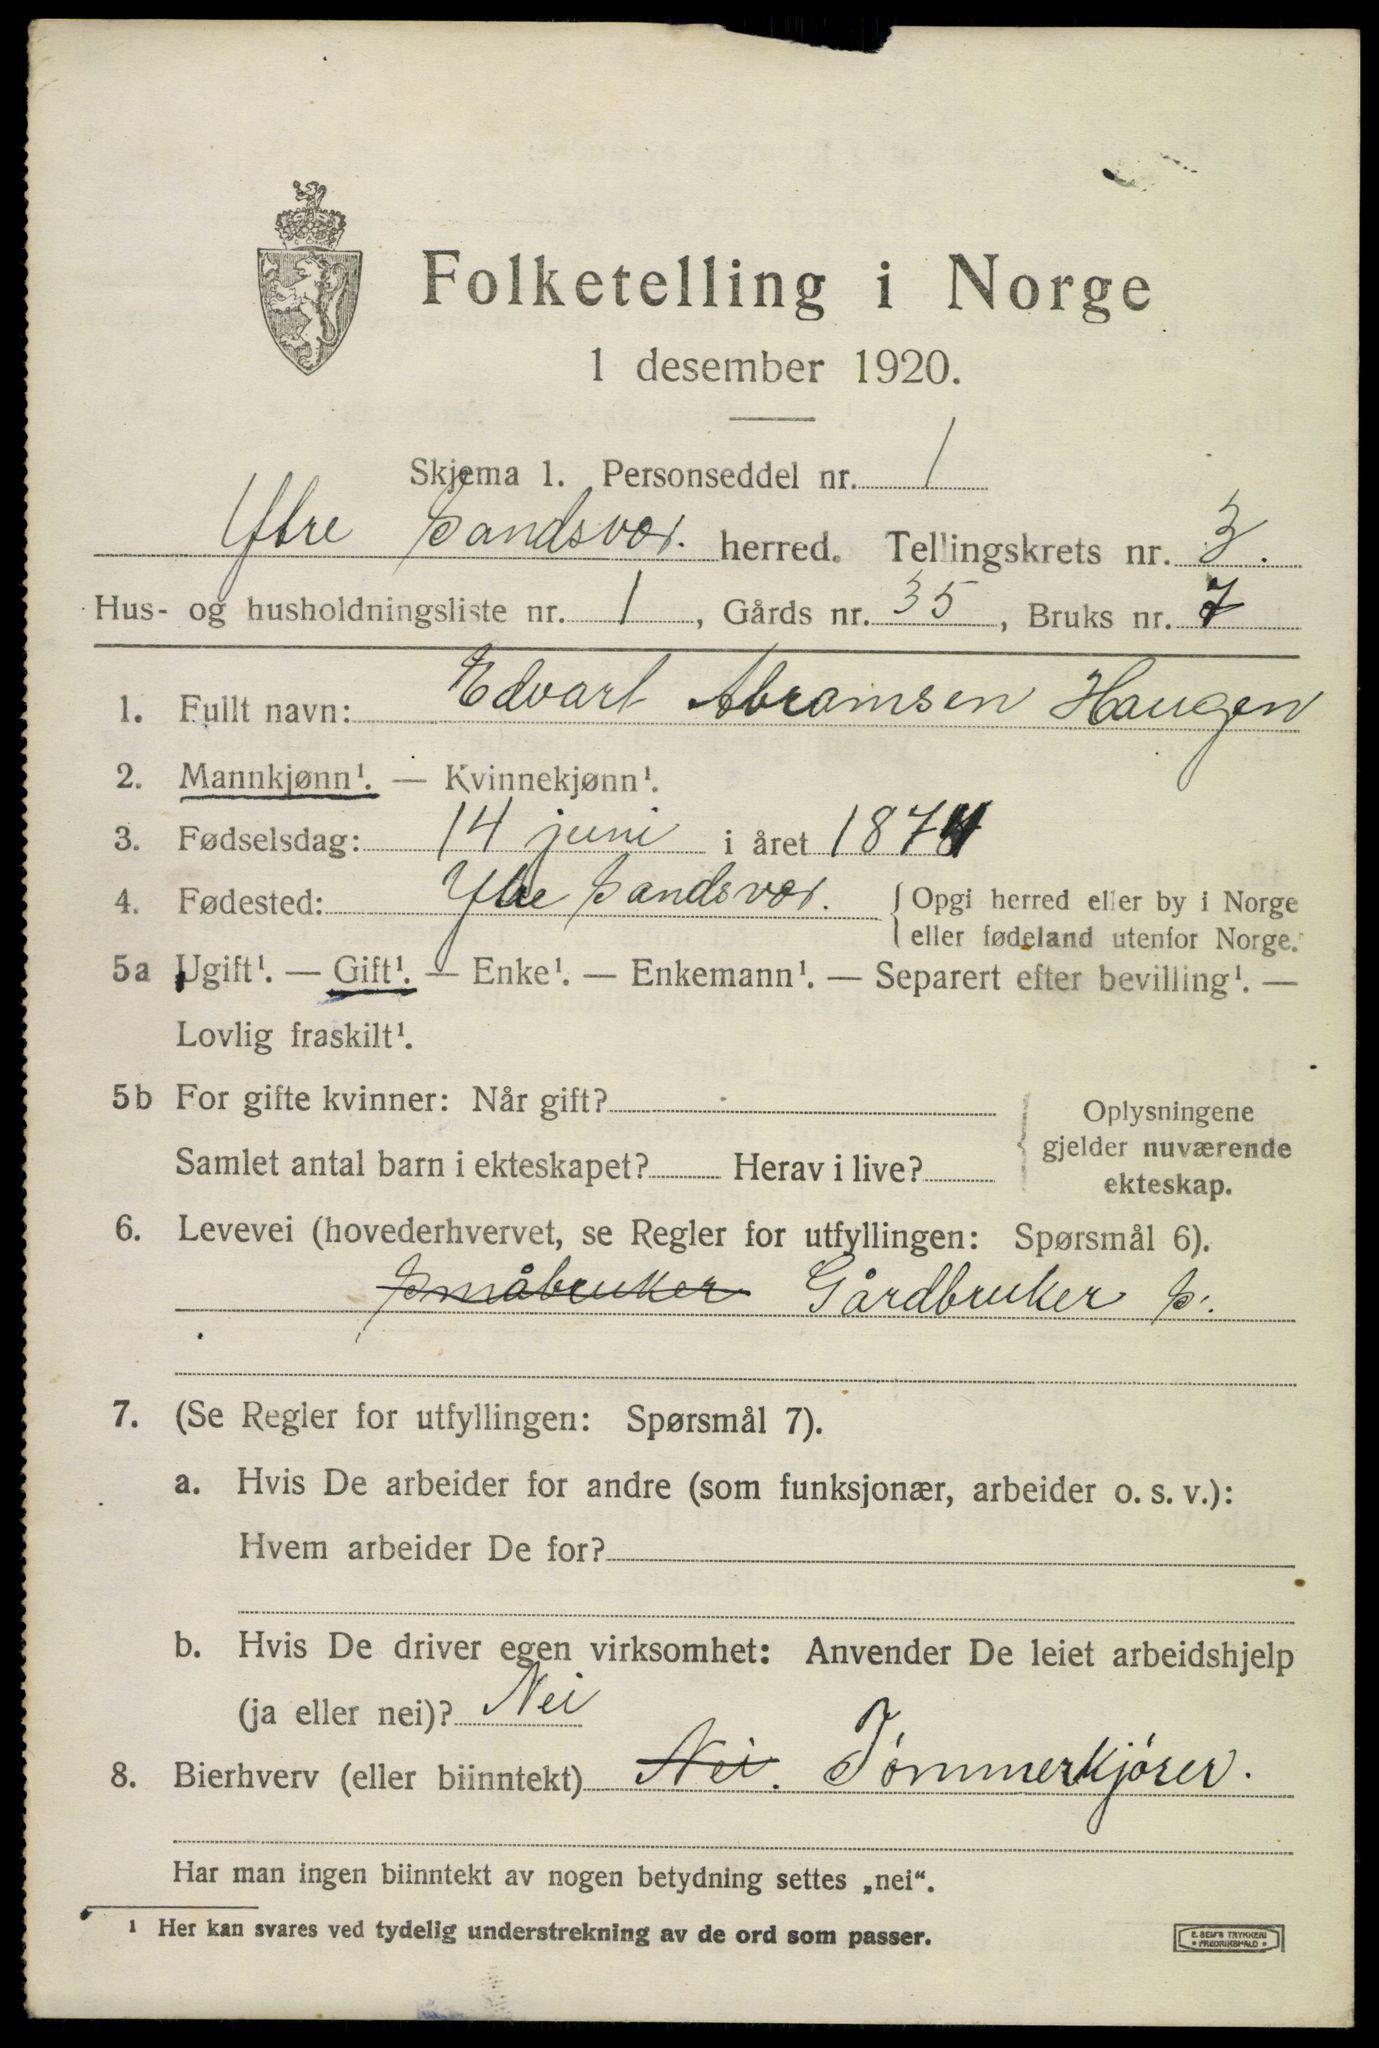 Folketelling i Norge
1 desember 1920.
Skjema 1. Personseddel nr. 1
Ytre Sandsvær. herred. Tellingskrets nr. 3.
Hus- og husholdningsliste nr. 1, Gårds nr. 35, Bruks nr. 7
1. Fullt navn: Edvart Abramsen Haugen
2. Mannkjønn¹. — Kvinnekjønn¹.
3. Fødselsdag: 14 juni i året 187
4. Fødested: Ytre Sandsvær. { Opgi herred eller by i Norge
eller fødeland utenfor Norge.
5a Ugift¹. — Gift¹. — Enke¹. — Enkemann¹. — Separert efter bevilling¹. —
Lovlig fraskilt¹.
5b For gifte kvinner: Når gift?
Samlet antal barn i ekteskapet? Herav i live?
{ Oplysningene
gjelder nuværende
ekteskap.
6. Levevei (hovederhvervet, se Regler for utfyllingen: Spørsmål 6).
Småbruker Gårdbruker S.
7. (Se Regler for utfyllingen: Spørsmål 7).
a. Hvis De arbeider for andre (som funksjonær, arbeider o. s. v.):
Hvem arbeider De for?
b. Hvis De driver egen virksomhet: Anvender De leiet arbeidshjelp
(ja eller nei)? Nei
8. Bierhverv (eller biinntekt) Nei. Tømmerkjører.
Har man ingen biinntekt av nogen betydning settes „nei“.
¹ Her kan svares ved tydelig understrekning av de ord som passer.
E. SEM'S TRYKKERI
* FREDRIKSHALD *